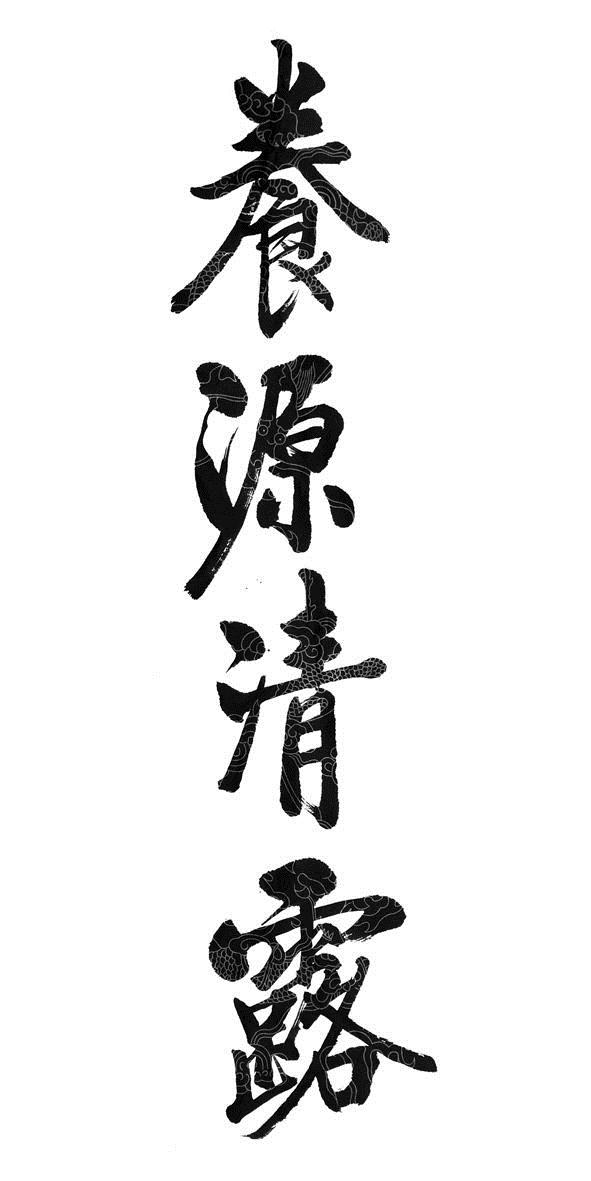 養源清露